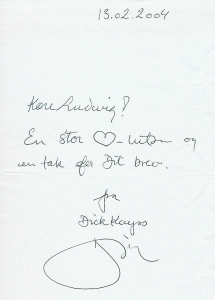 13.02.2004
Kære Ludwig!
En stor ♡- og
en tak for Dit brev.
fra
Dick Kaysø